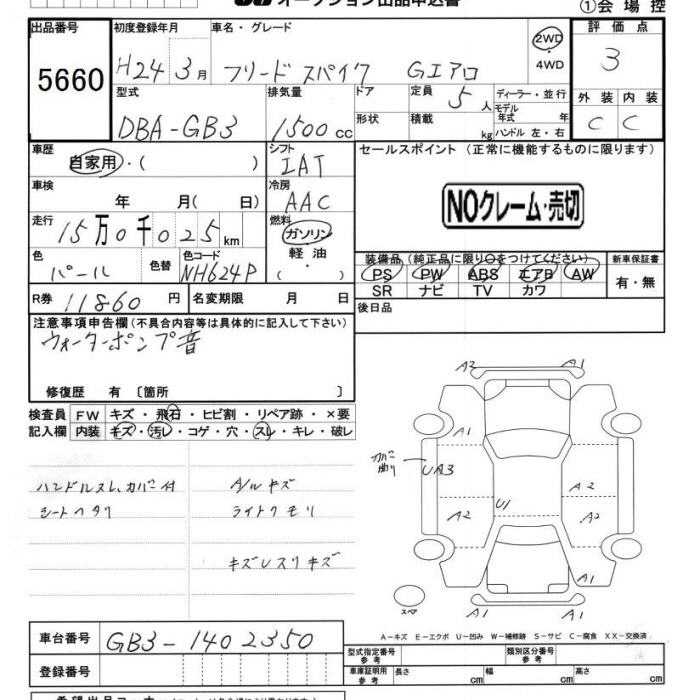 オークション出品申込書
①会場控
出品番号
5660
初度登録年月
H24 3月
車名・グレード
フリード スパイク Gエアロ
2WD
・
4WD
評価点
3
外装 内装
C C
型式
DBA-GB3
排気量
1500 cc
ドア
形状
定員 5人
積載 kg
ディーラー・並行
モデル
年式 年
ハンドル 左・右
車歴
自家用・( )
シフト
IAT
セールスポイント (正常に機能するものに限ります)
NOクレーム・売切
車検
年 月( 日)
冷房
AAC
走行
15万0千025km
燃料
ガソリン
・
軽油
・
( )
色
パール
色替
色コード
NH624P
装備品(純正品に限り○をつけてください)
PS PW ABS エアB AW
SR ナビ TV カワ
新車保証書
有・無
R券 11860円
名変期限 月 日
後日品
注意事項申告欄(不具合内容等は具体的に記入して下さい)
ウォーターポンプ音
修復歴 有〔箇所 〕
検査員 FW キズ・飛石・ヒビ割・リペア跡・×要
記入欄 内装 キズ・汚レ・コゲ・穴・スレ・キレ・破レ
ハンドルスレ、カバー付
シートヘタリ
A/Wキズ
ライトクモリ
キズUスリキズ
A2 A1
A1
カバー
曲り
UA3
A2
A2
U1
A2
A1
A1 A1
スペア
A-キズ E-エクボ U-凹み W-補修跡 S-サビ C-腐食 XX-交換済
車台番号
GB3-1402350
登録番号
型式指定番号
参考
類別区分番号
参考
車庫証明用
参考
長さ cm
幅 cm
高さ cm